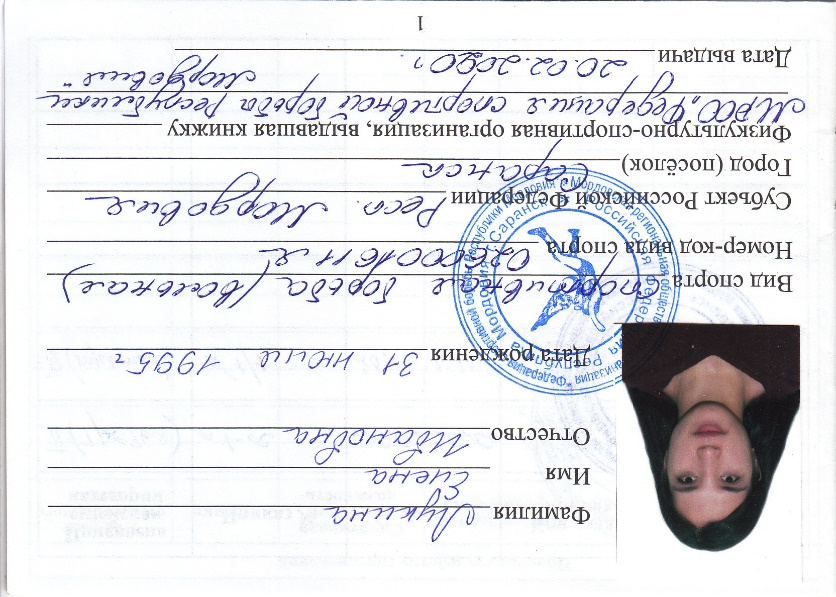 Фамилия Лукина
Имя Елена
Отчество Ивановна
Дата рождения 31 июля 1995г
Вид спорта Спортивная борьба (вольная)
Номер-код вида спорта 0260001611Я
Субъект Российской Федерации Респ. Мордовия
Город (посёлок) Саранск
Физкультурно-спортивная организация, выдавшая книжку
МРОО „Федерация спортивной борьбы Республики
Мордовия"
Дата выдачи 20.02.2020г.
1